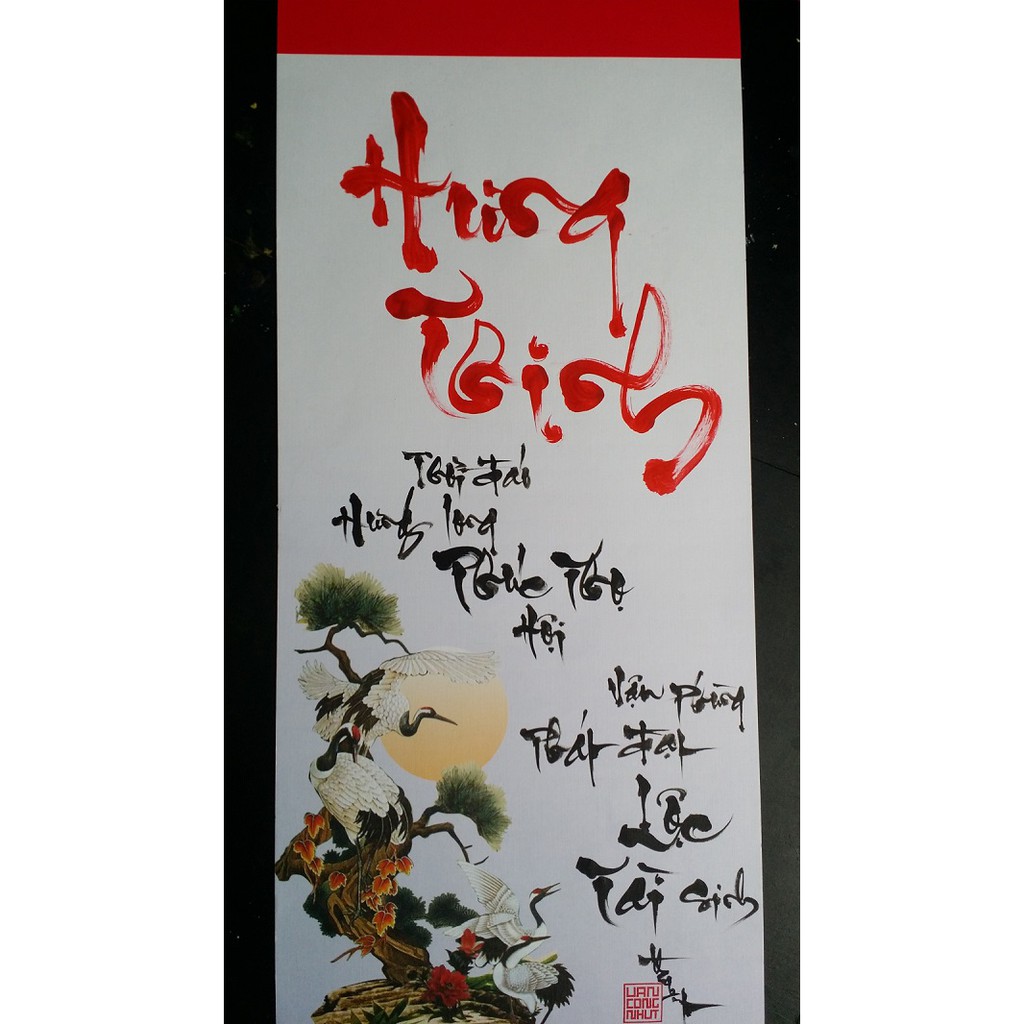 Hưng
Thịnh
Thời đáo
Hưng long
Phúc Thọ
Hội
Vận Phùng
Phát đạt
Lộc
Tài sinh
VAN
CONG
NHUT